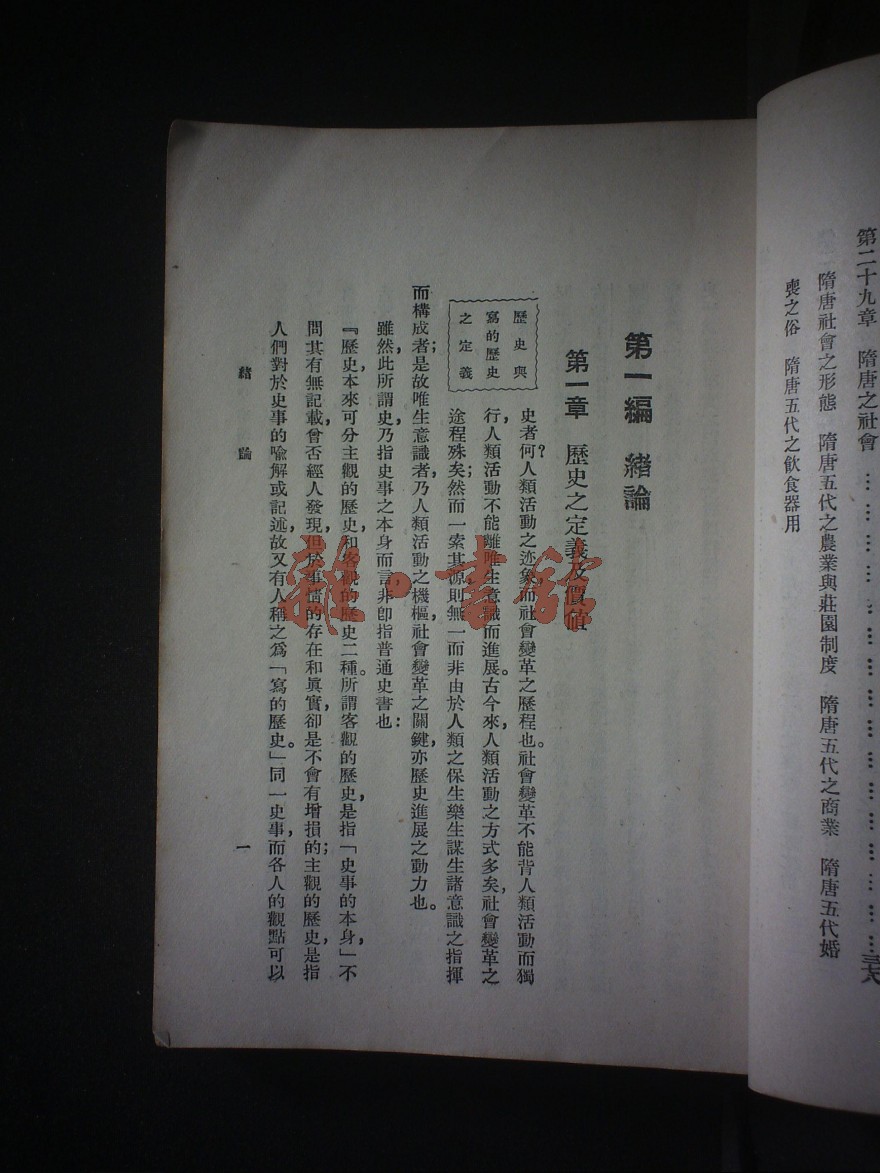 第二十九章　隋唐之社會………………………………三六八
隋唐社會之形態　隋唐五代之農業與莊園制度　隋唐五代之商業　隋唐五代婚
喪之俗　隋唐五代之飲食器用
第一編　緒論
第一章　歷史之定義及價值
歷史與
寫的歷史
之定義
史者何？人類活動之迹象，而社會變革之歷程也。社會變革不能背人類活動而獨
行，人類活動不能離唯生意識而進展。古今來，人類活動之方式多矣，社會變革之
途程殊矣；然而一索其源，則無一而非由於人類之保生樂生謀生諸意識之指揮
而構成者；是故唯生意識者，乃人類活動之機樞，社會變革之關鍵，亦歷史進展之動力也。
雖然，此所謂史，乃指史事之本身而言，非卽指普通史書也：
『歷史，本來可分主觀的歷史，和客觀的歷史二種。所謂客觀的歷史，是指「史事的本身，」不
問其有無記載，曾否經人發現，但於事情的存在和眞實，卻是不會有增損的；主觀的歷史，是指
人們對於史事的喩解或記述，故又有人稱之爲「寫的歷史。」同一史事，而各人的觀點可以
緒論
一
雜·書館